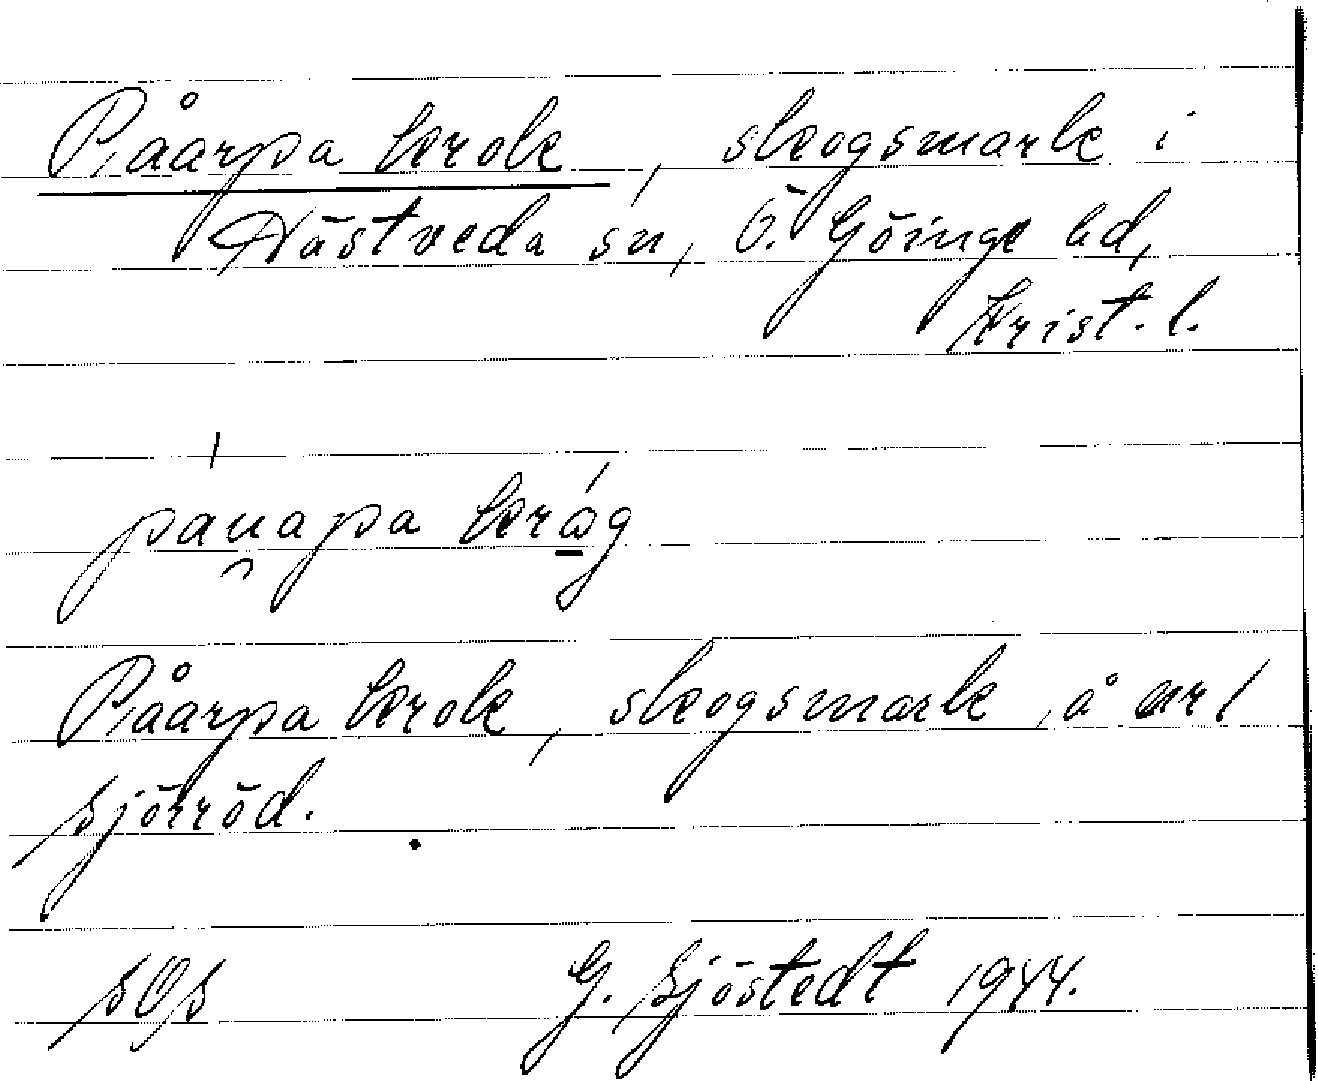 Påarpa krok, skogsmark i
Nästveda sn, Ö. Göinge hd,
Krist. l.
pauapa kråg
Påarpa krok, skogsmark, å nr 1
Sjöröd.
SOS G. Sjöstedt 1944.